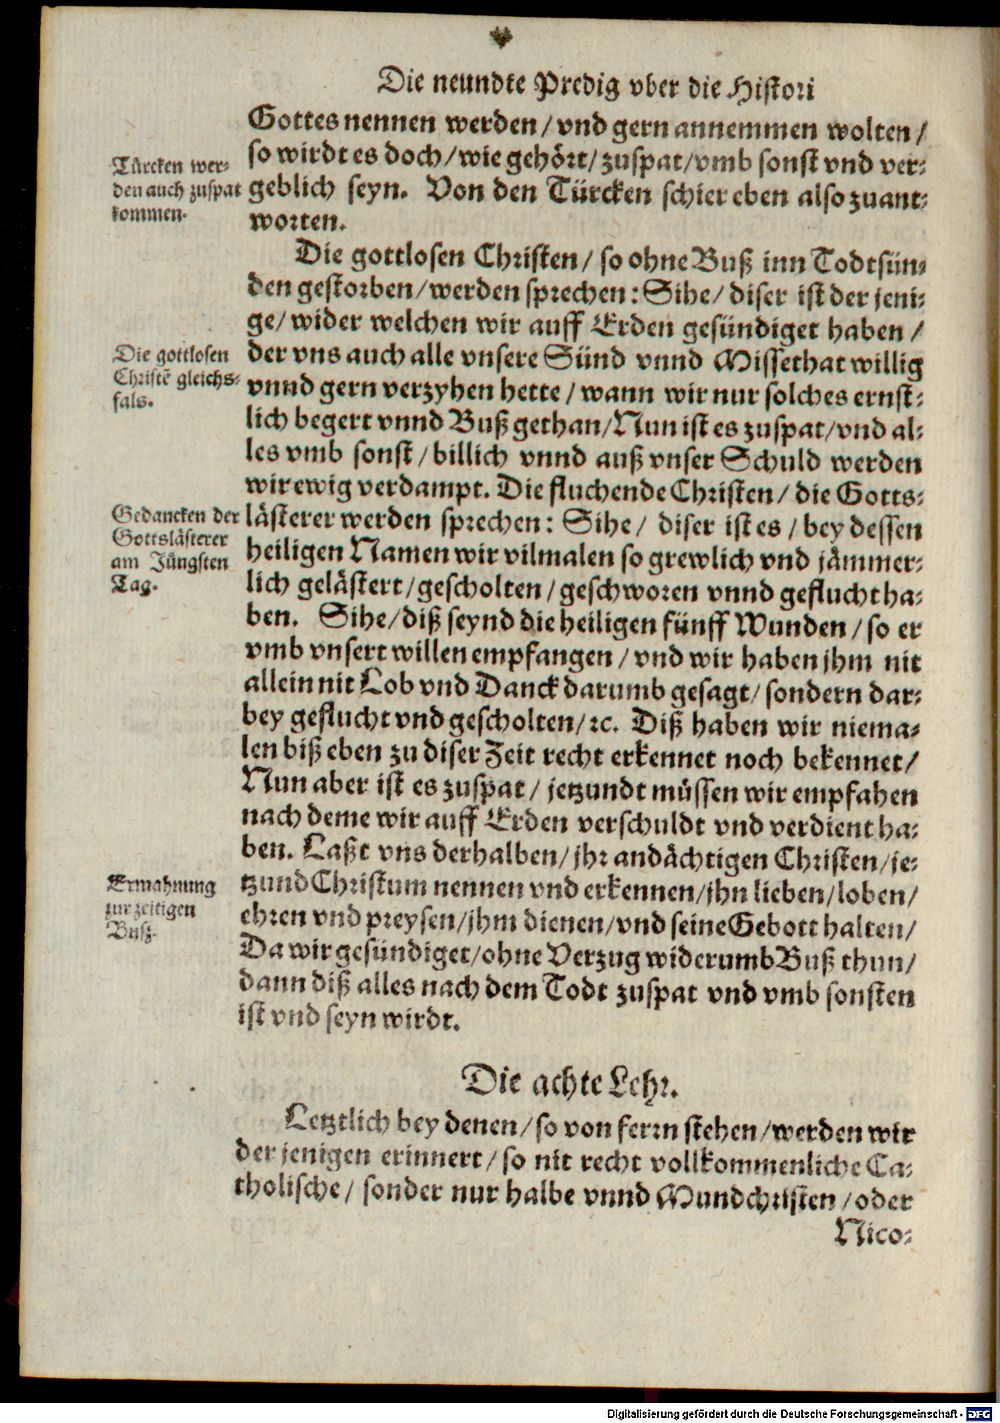 Die neundte Predig vber die Histori
Gottes nennen werden / vnd gern annemmen wolten /
so wirdt es doch / wie gehört / zuspat / vmb sonst vnd ver-
geblich seyn. Von den Türcken schier eben also zuant-
worten.
Türcken wer-
den auch zuspat
kommen.
Die gottlosen Christen / so ohne Buß inn Todtsün-
den gestorben / werden sprechen: Sihe / diser ist der jeni-
ge / wider welchen wir auff Erden gesündiget haben /
der vns auch alle vnsere Sünd vnnd Missethat willig
vnnd gern verzyhen hette / wann wir nur solches ernst-
lich begert vnnd Buß gethan / Nun ist es zuspat / vnd al-
les vmb sonst / billich vnnd auß vnser Schuld werden
wir ewig verdampt. Die fluchende Christen / die Gotts-
lästerer werden sprechen: Sihe / diser ist es / bey dessen
heiligen Namen wir vilmalen so grewlich vnd jämmer-
lich gelästert / gescholten / geschworen vnnd geflucht ha-
ben. Sihe / diß seynd die heiligen fünff Wunden / so er
vmb vnsert willen empfangen / vnd wir haben jhm nit
allein nit Lob vnd Danck darumb gesagt / sondern dar-
bey geflucht vnd gescholten / ꝛc. Diß haben wir niema-
len biß eben zu diser Zeit recht erkennet noch bekennet /
Nun aber ist es zuspat / jetzundt müssen wir empfahen
nach deme wir auff Erden verschuldt vnd verdient ha-
ben. Laßt vns derhalben / jhr andächtigen Christen / je-
tzund Christum nennen vnd erkennen / jhn lieben / loben /
ehren vnd preysen / jhm dienen / vnd seine Gebott halten /
Da wir gesündiget / ohne Verzug widerumb Buß thun /
dann diß alles nach dem Todt zuspat vnd vmb sonsten
ist vnd seyn wirdt.
Die gottlosen
Christē gleichs-
fals.
Gedancken der
Gottslästerer
am Jüngsten
Tag.
Ermahnung
zur zeitigen
Buß.
Die achte Lehr.
Letztlich bey denen / so von ferrn stehen / werden wir
der jenigen erinnert / so nit recht vollkommenliche Ca-
tholische / sonder nur halbe vnnd Mundchristen / oder
Nico-
Digitalisierung gefördert durch die Deutsche Forschungsgemeinschaft - DFG